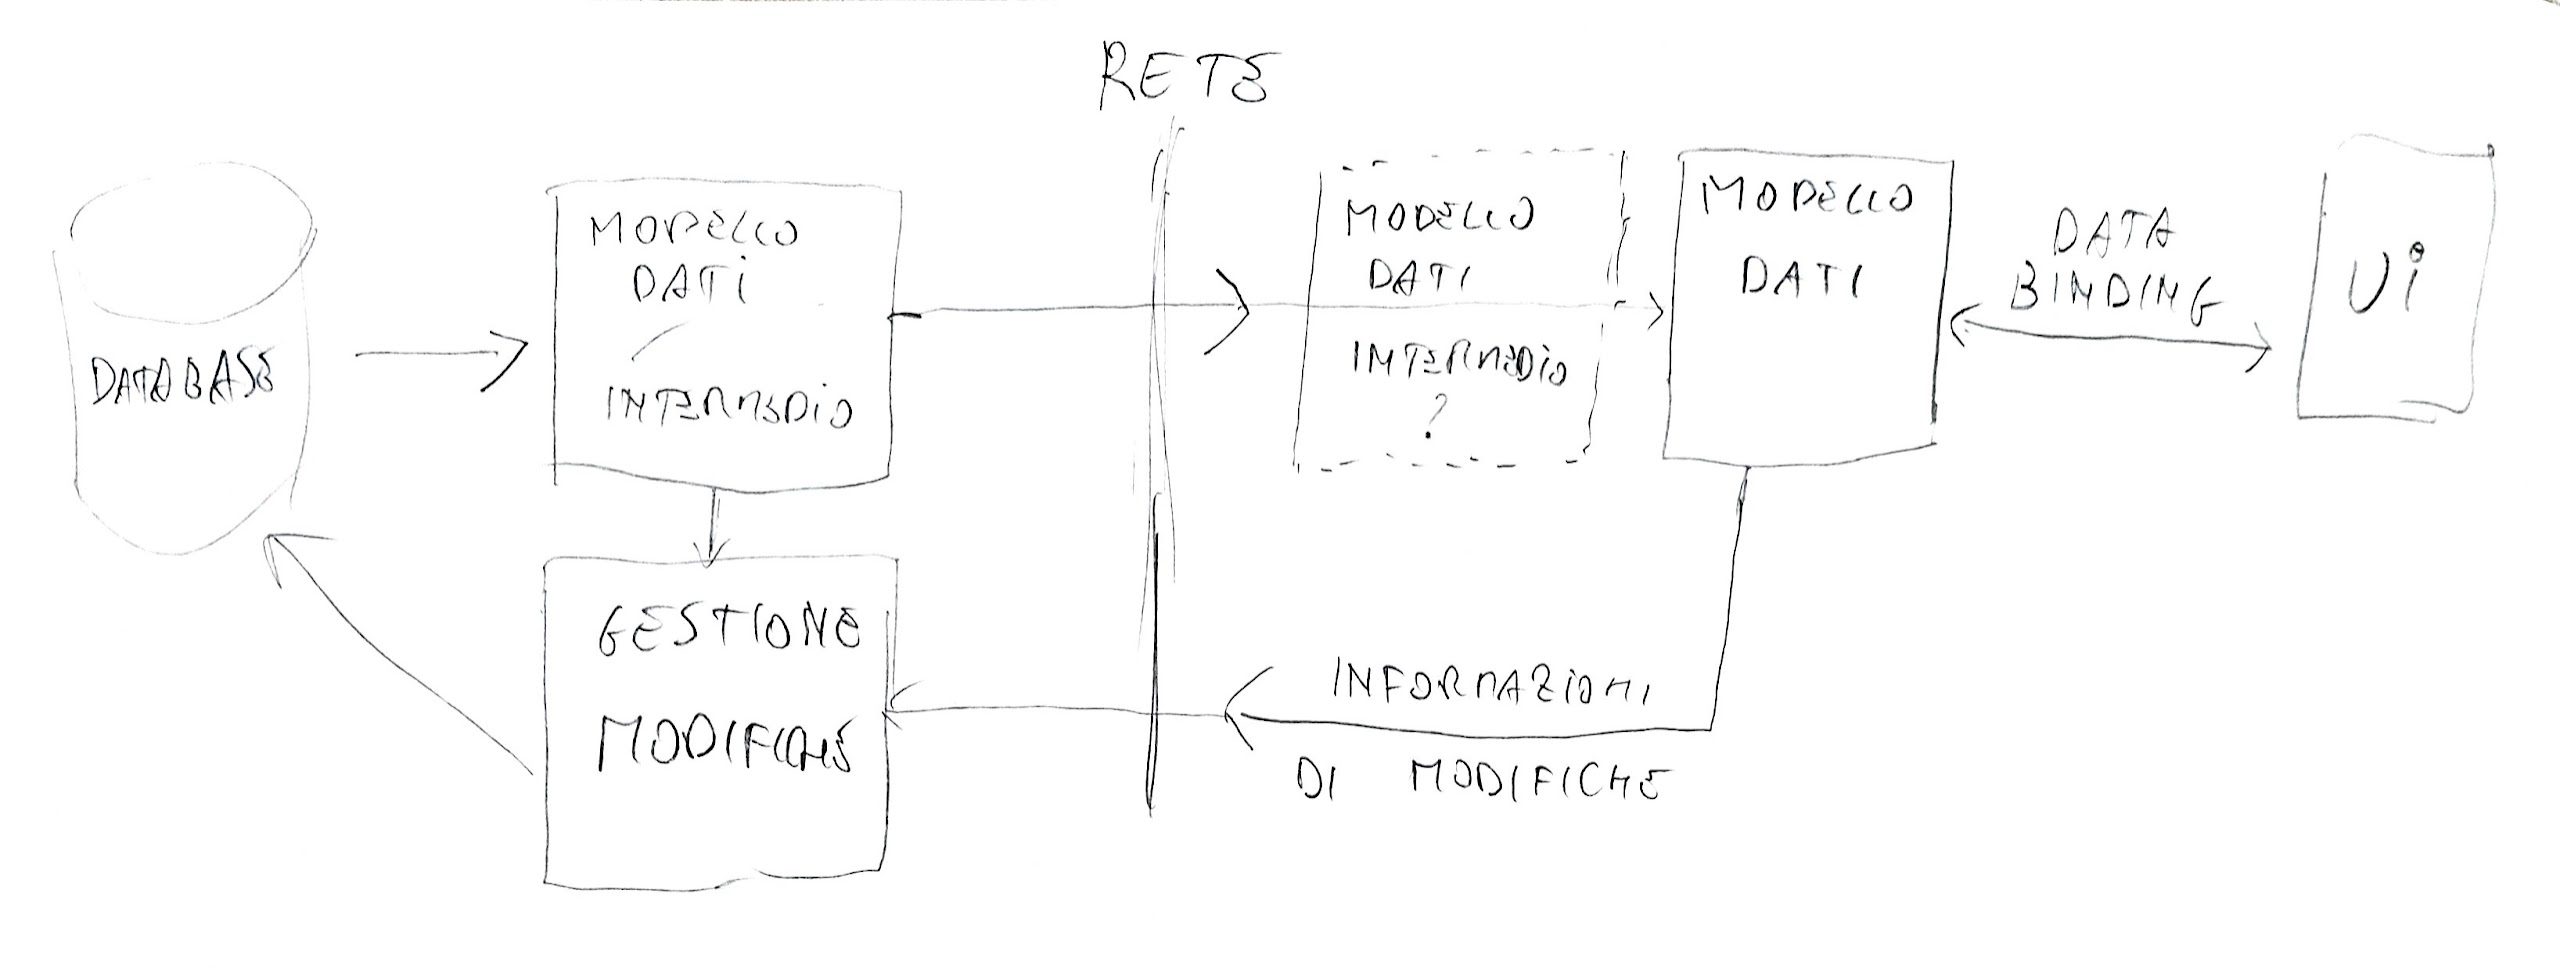 RETE
DATABASE
MODELLO
DATI
/
INTERMEDIO
MODELLO
DATI
INTERMEDIO
?
MODELLO
DATI
DATA
BINDING
Ui
GESTIONE
MODIFICHE
INFORMAZIONI
DI MODIFICHE